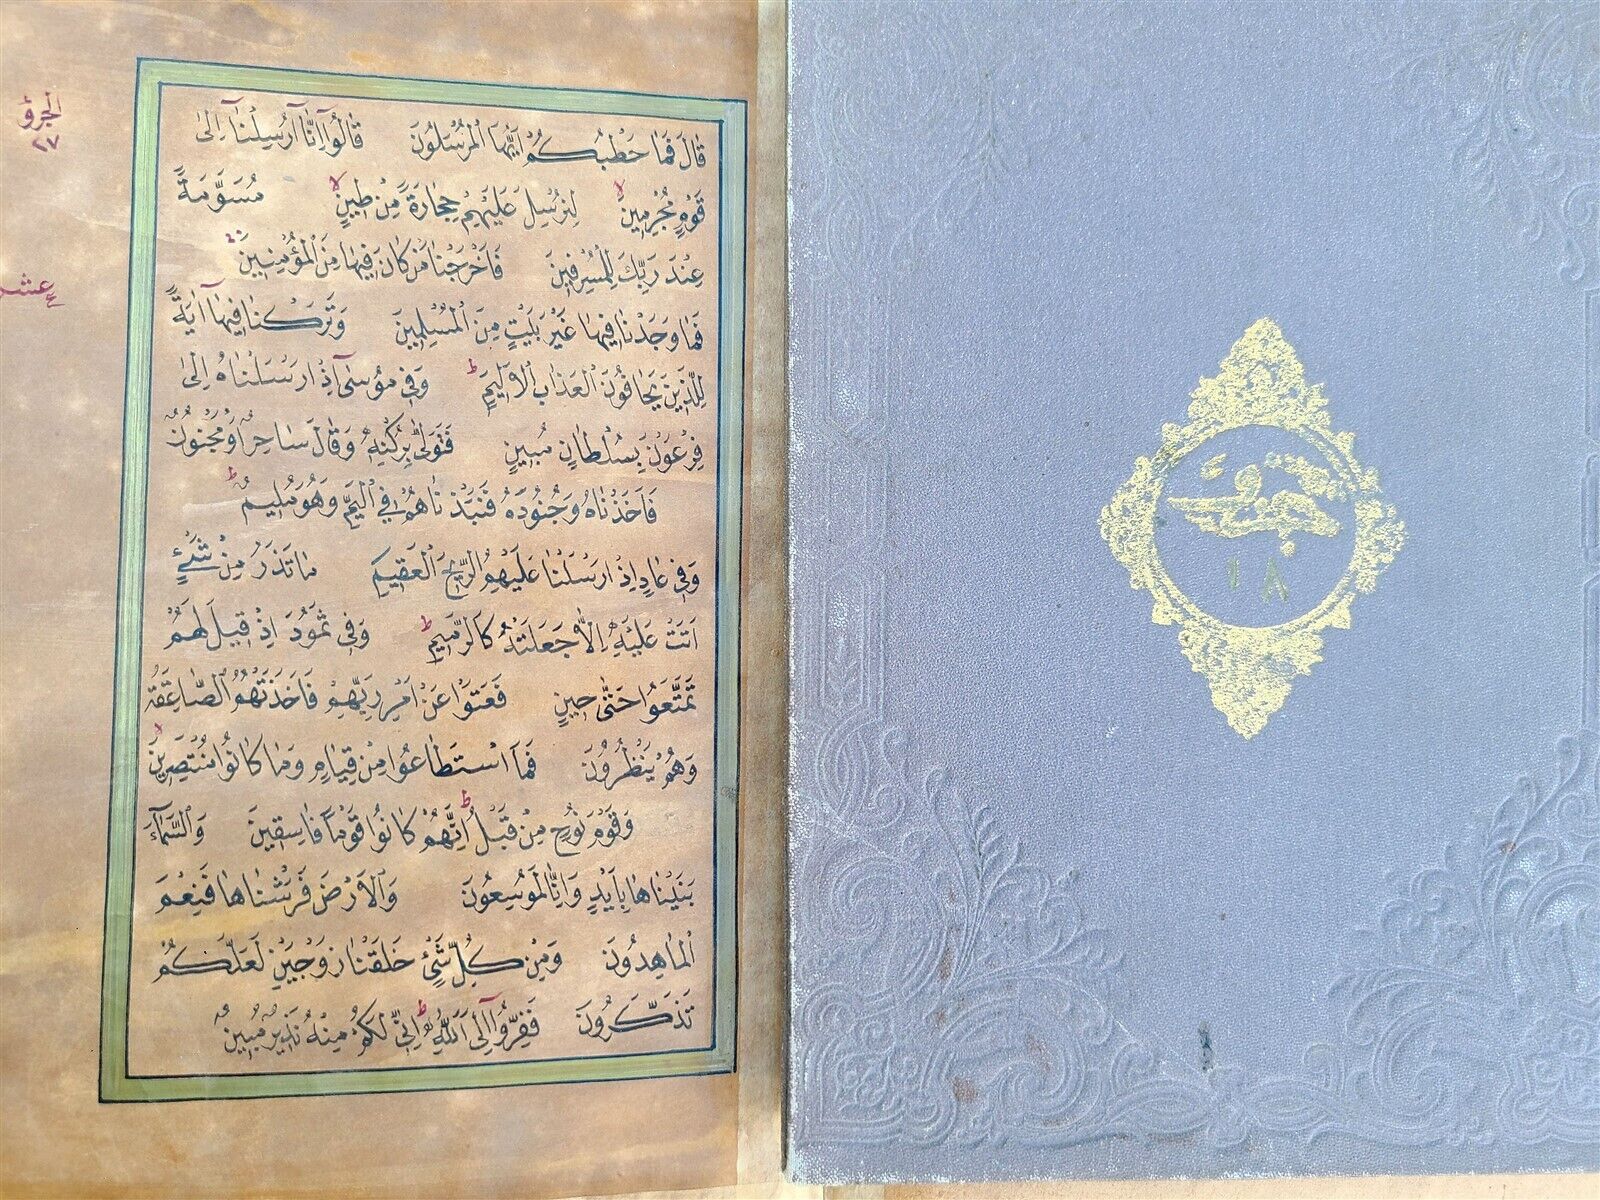 الجزؤ
٢٧
عشر
قَالَ فَمَا خَطْبُكُمْ اَيُّهَا الْمُرْسَلُونَ قَالُوا اِنَّا اُرْسِلْنَا اِلٰى
قَوْمٍ مُجْرِمِينَ لِنُرْسِلَ عَلَيْهِمْ حِجَارَةً مِنْ طِينٍ مُسَوَّمَةً
عِنْدَ رَبِّكَ لِلْمُسْرِفِينَ فَاَخْرَجْنَا مَنْ كَانَ فِيهَا مِنَ الْمُؤْمِنِينَ
فَمَا وَجَدْنَا فِيهَا غَيْرَ بَيْتٍ مِنَ الْمُسْلِمِينَ وَتَرَكْنَا فِيهَا اٰيَةً
لِلَّذِينَ يَخَافُونَ الْعَذَابَ الْاَلِيمَ وَفِى مُوسٰى اِذْ اَرْسَلْنَاهُ اِلٰى
فِرْعَوْنَ بِسُلْطَانٍ مُبِينٍ فَتَوَلّٰى بِرُكْنِهِ وَقَالَ سَاحِرٌ اَوْ مَجْنُونٌ
فَاَخَذْنَاهُ وَجُنُودَهُ فَنَبَذْنَاهُمْ فِي الْيَمِّ وَهُوَ مُلِيمٌ
وَفِى عَادٍ اِذْ اَرْسَلْنَا عَلَيْهِمُ الرِّيحَ الْعَقِيمَ مَا تَذَرُ مِنْ شَيْءٍ
اَتَتْ عَلَيْهِ اِلَّا جَعَلَتْهُ كَالرَّمِيمِ وَفِى ثَمُودَ اِذْ قِيلَ لَهُمْ
تَمَتَّعُوا حَتّٰى حِينٍ فَعَتَوْا عَنْ اَمْرِ رَبِّهِمْ فَاَخَذَتْهُمُ الصَّاعِقَةُ
وَهُمْ يَنْظُرُونَ فَمَا اسْتَطَاعُوا مِنْ قِيَامٍ وَمَا كَانُوا مُنْتَصِرِينَ
وَقَوْمَ نُوحٍ مِنْ قَبْلُ اِنَّهُمْ كَانُوا قَوْمًا فَاسِقِينَ وَالسَّمَآءَ
بَنَيْنَاهَا بِاَيْيدٍ وَاِنَّا لَمُوسِعُونَ وَالْاَرْضَ فَرَشْنَاهَا فَنِعْمَ
الْمَاهِدُونَ وَمِنْ كُلِّ شَيْءٍ خَلَقْنَا زَوْجَيْنِ لَعَلَّكُمْ
تَذَكَّرُونَ فَفِرُّوا اِلَى اللّٰهِ اِنِّي لَكُمْ مِنْهُ نَذِيرٌ مُبِينٌ
جزؤ
١٨